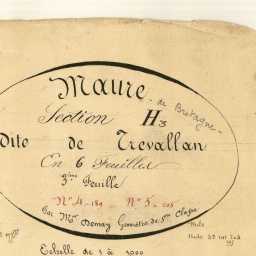 Maure
- de Bretagne -
Section H3
Dite de Trevallan
En 6 Feuilles
3ème Feuille
N° 4-189 - N° 5-
Par Mr Demay Géomètre de 
Echelle de 1 à 2000